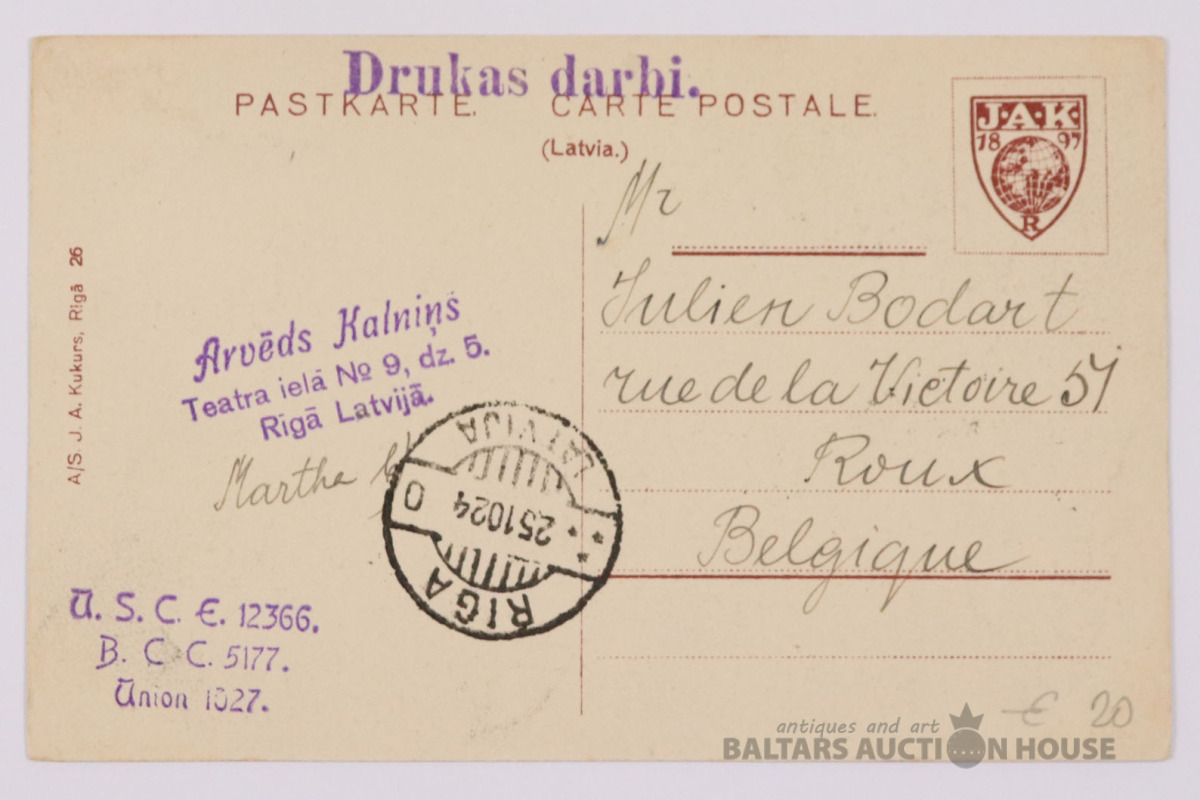 Drukas darbi.
PASTKARTE. CARTE POSTALE.
(Latvia.)
J.A.K.
18 97
R
A/S. J. A. Kukurs, Rīgā 26
Arvēds Kalniņš
Teatra ielā № 9, dz. 5.
Rīgā Latvijā.
Martha
LATVIJA
251024
O
RIGA
U. S. C. E. 12366.
B. C. C. 5177.
Union 1327.
Mr
Julien Bodart
rue de la Victoire 51
Roux
Belgique
€ 20
antiques and art
BALTARS AUCTION HOUSE